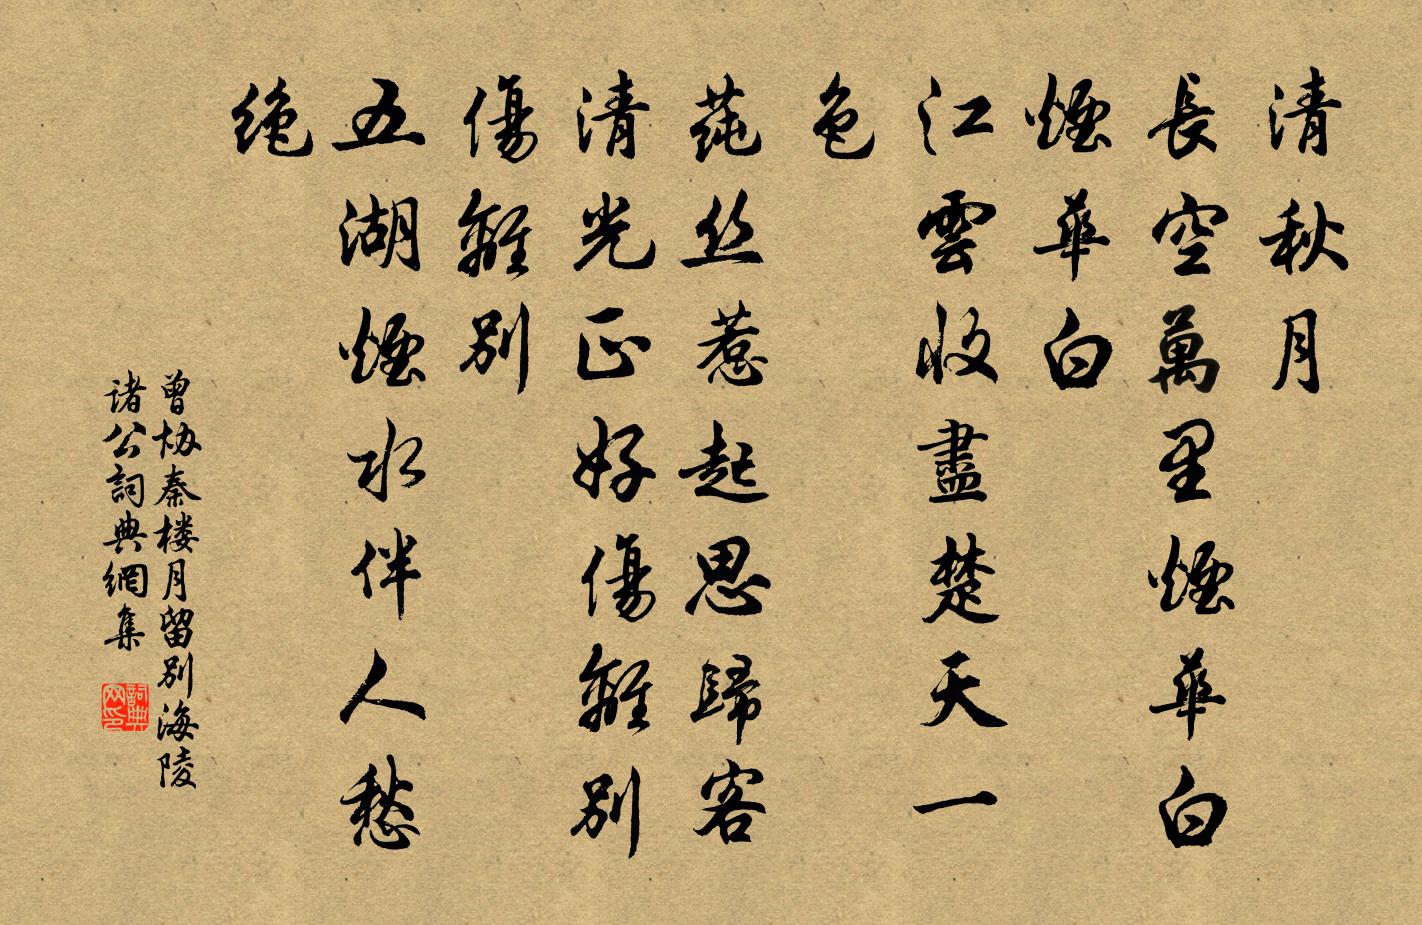 清秋月
長空萬里煙華白
煙華白
江雲收盡楚天一
色
蓴丝惹起思歸客
清光正好傷離別
傷離別
五湖煙水伴人愁
绝
曾协秦楼月留别海陵
诸公詞典網集
詞典网印